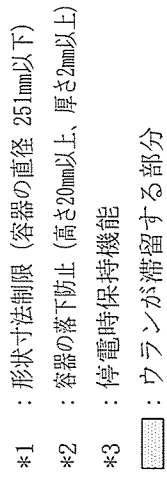 *1 : 形状寸法制限 (容器の直径 251mm以下)
*2 : 容器の落下防止 (高さ20mm以上、厚さ2mm以上)
*3 : 停電時保持機能
: ウランが滞留する部分